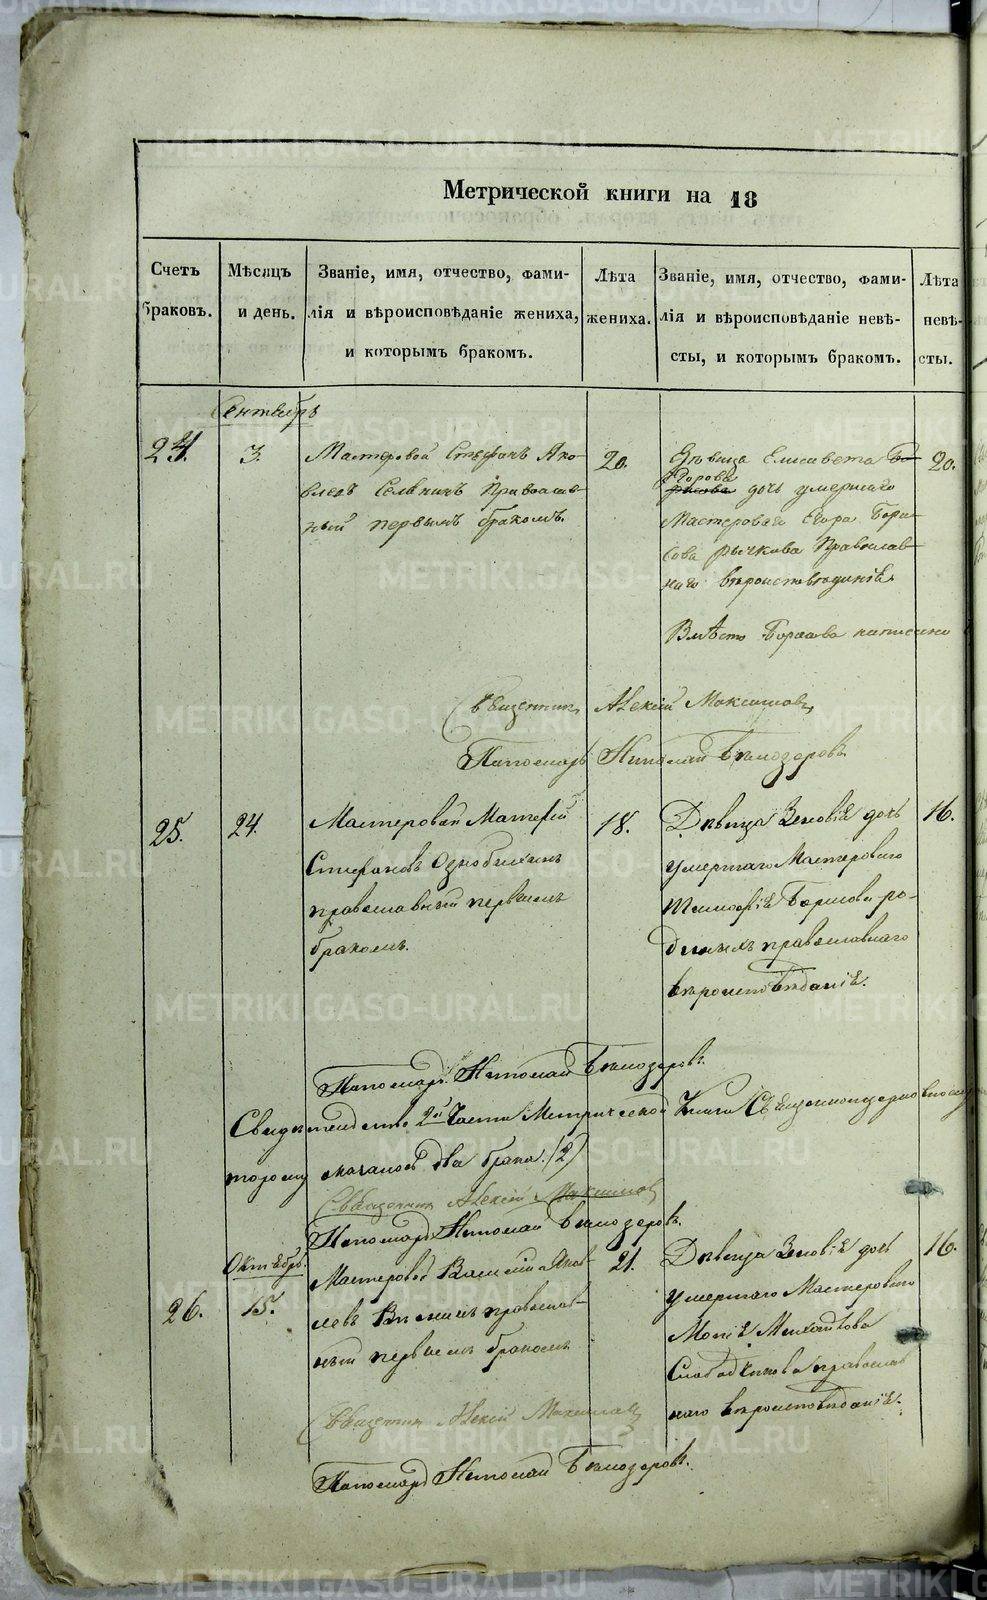 Метрической книги на 18
Счетъ браковъ.
Мѣсяцъ и день.
Званіе, имя, отчество, фами-
лія и вѣроисповѣданіе жениха,
и которымъ бракомъ.
Лѣта жениха.
Званіе, имя, отчество, фами-
лія и вѣроисповѣданіе невѣ-
сты, и которымъ бракомъ.
Лѣта невѣ-
сты.
Сентябрь
24.
3.
Мастеровой Стефанъ Яко
влевъ Православ-
ный первымъ бракомъ.
20.
Дѣвица Елисавета Бо
Егорова
рисова дочь умершаго
Мастероваго Егора Бори
сова Рычкова Православ-
наго вѣроисповѣданія
Вмѣсто Борисова написано
Священникъ Алексій Максимовъ
Пономарь Николай Бѣлозеровъ
25.
24.
Мастеровой Матфей
Стефановъ Ознобихинъ
православный первымъ
бракомъ.
18.
Дѣвица Зеновія дочь
умершаго Мастероваго
Тимофѣя ро-
православнаго
вѣроисповѣданія.
16.
Пономарь Николай Бѣлозеровъ
2й Части Метрической Книги
два брака (2)
Священникъ Алексій Максимовъ
Пономарь Николай Бѣлозеровъ.
Октябрь.
26.
15.
Мастеровой Василій Яков
левъ православ-
ный первымъ бракомъ
21.
Дѣвица Зеновія дочь
умершаго Мастероваго
Михайлова
Слободчикова православ
наго вѣроисповѣданія.
16.
Священникъ Алексій Максимовъ
Пономарь Николай Бѣлозеровъ.
METRIKI.GASO-URAL.RU